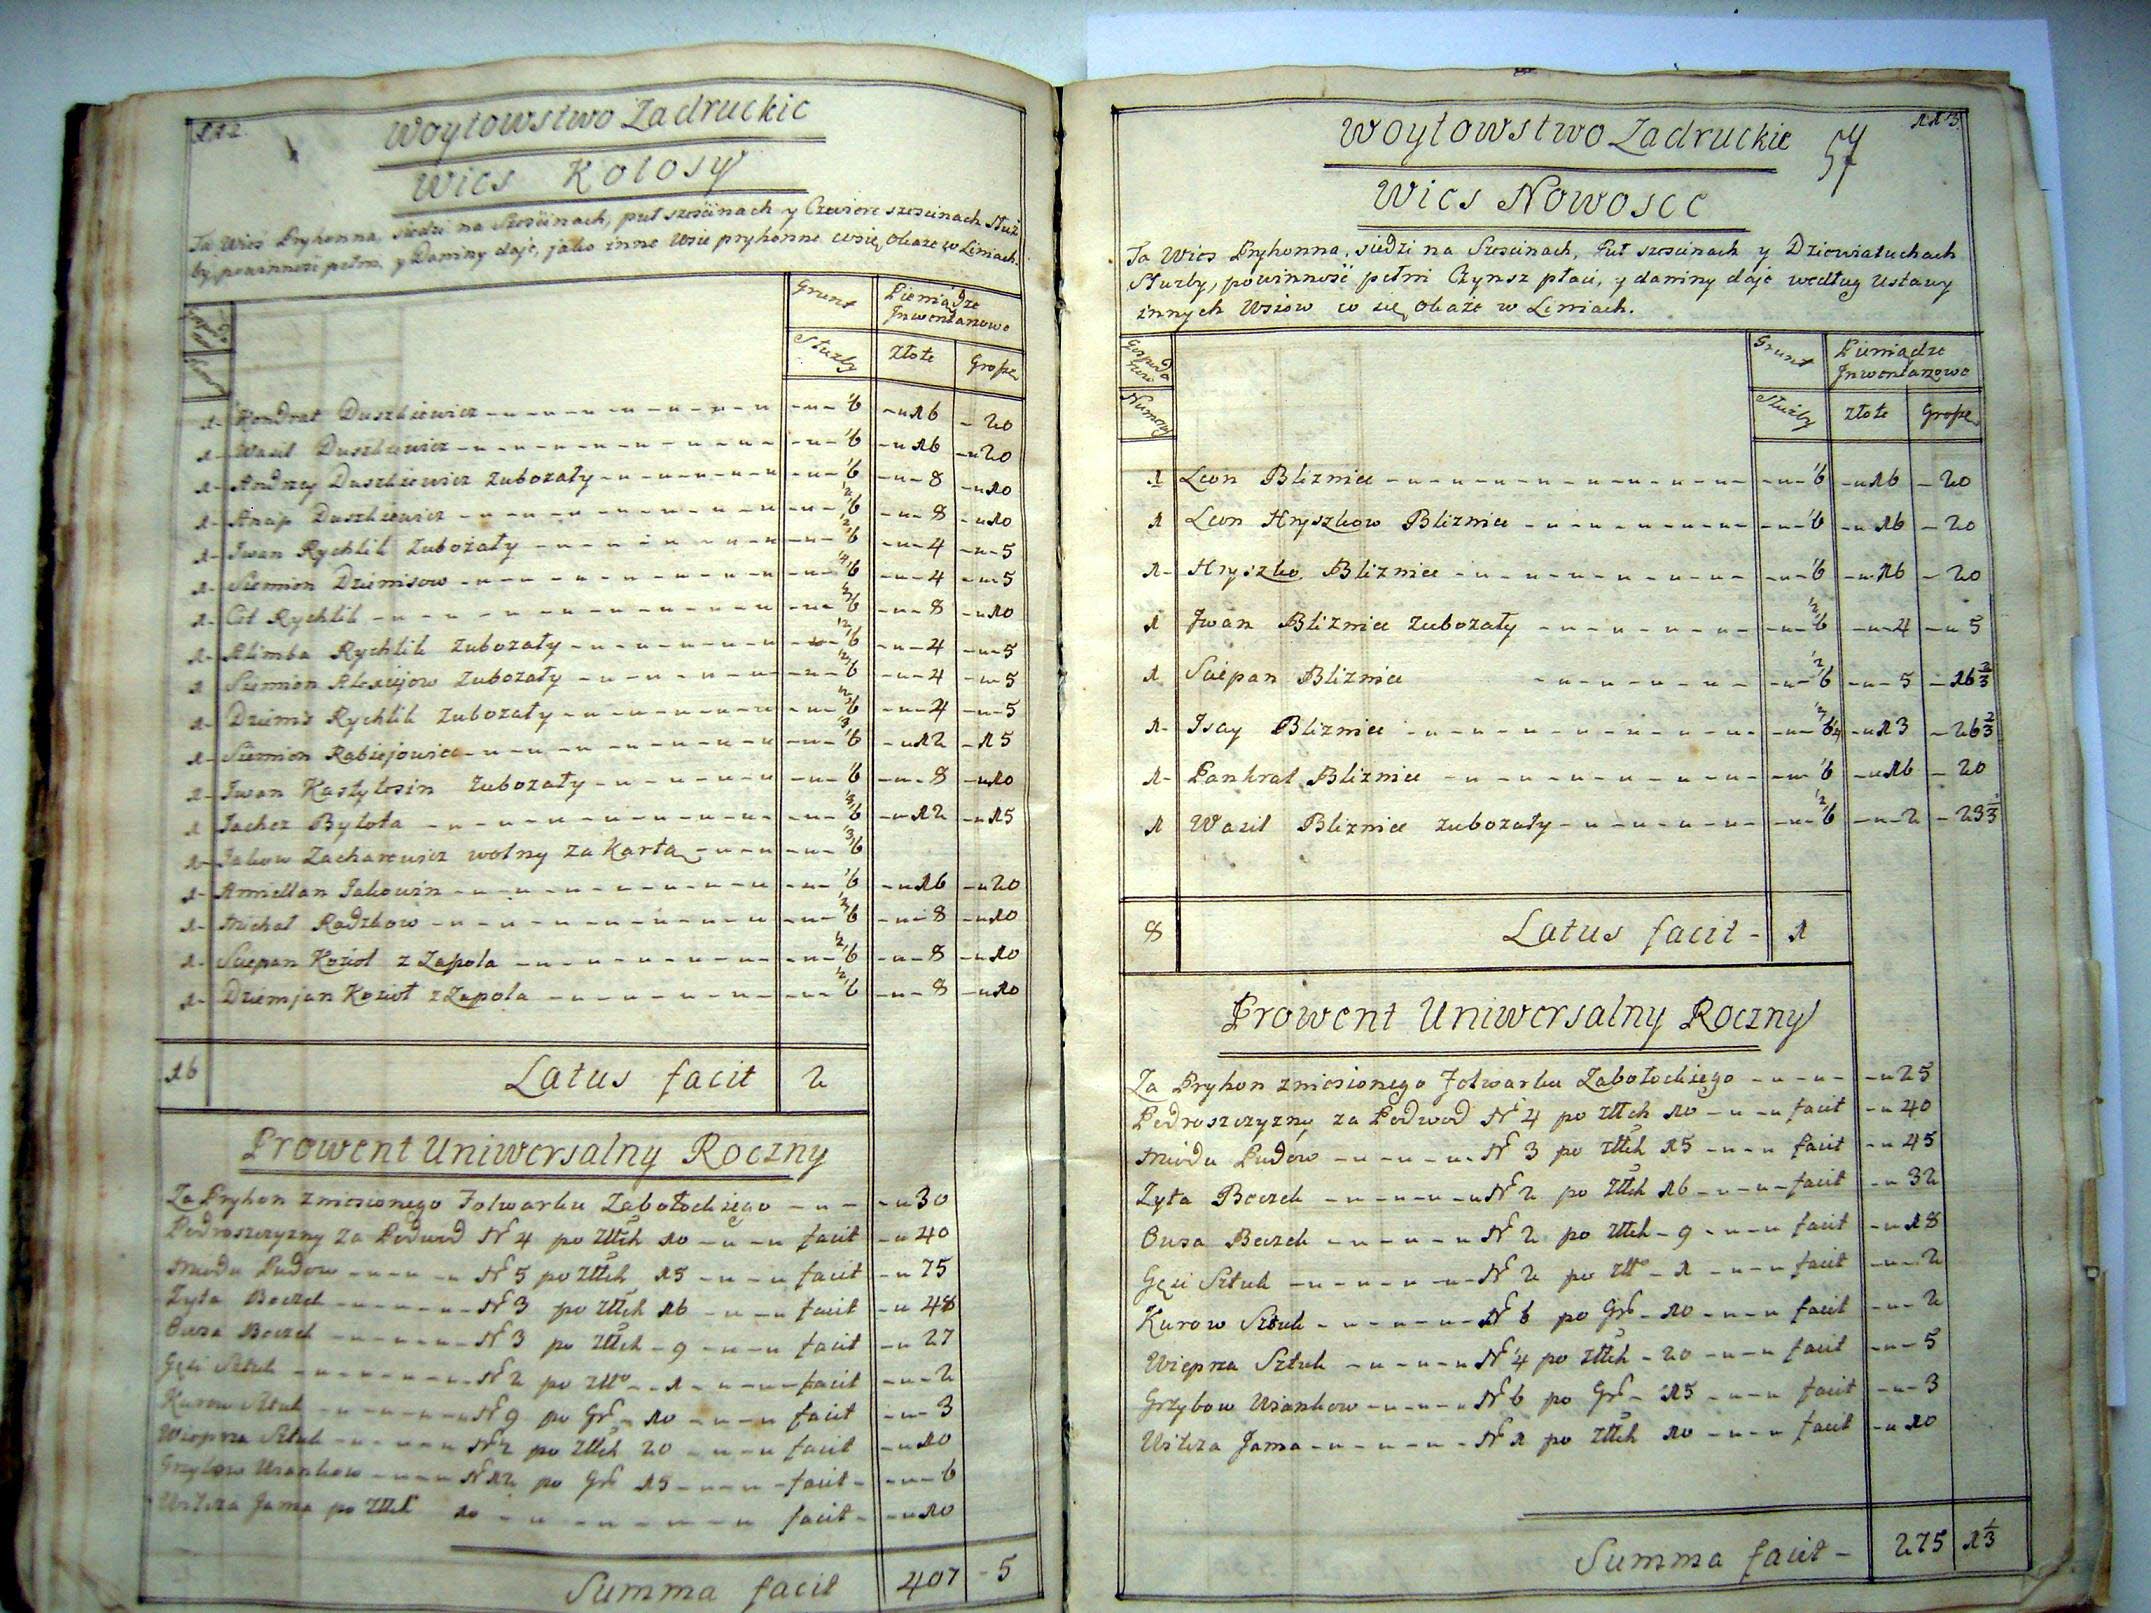 112.
Woytowstwo Zadruckie
Wies Kolosy
Ta Wieś Pryhonna, siedzi na Szościnach, puł szościnach y Czwierć szoscinach Służ
by, powinność pełni y Daniny daje, jako inne Wsie pryhonne co się okaże w Liniach.
Grunt Pieniądze Inwentarzowe
Służby Złote Grosze
1 - Kondrat Duszkiewicz 1/6 16 20
1 - Wasil Duszkiewicz 1/6 16 20
1 - Andrzey Duszkiewicz Zubozały 1/6 8 10
1 - Anap Duszkiewicz 8 10
1 - Jwan Rychlik Zubożały 4 5
1 - Siemion Dziemisow 4 5
1 - Cit Rychlik 8 10
1 - Klimba Rychlik Zubozały 4 5
1 Siemion Alexiejow Zubozały 4 5
1 - Dziemis Rychlik Zubozały 4 5
1 - Siemion Rabiejowicz 12 15
1 - Jwan Kastylosin Zubozały 1/6 8 10
1 Jachez Bylota 12 15
1 - Jakow Zacharewicz wolny za Kartą
1 - Amiellan Jakowin 1/6 16 20
1 - Michał Radzkow 8 10
1 - Sciepan Kozioł z Zapola 8 10
1 - Dziemjan Kozioł z Zapola 8 10
16 Latus facit 2
Prowent Uniwersalny Roczny
Za Pryhon zniesionego Folwarku Zabołockiego 30
Podroszczyzny za Podwod Nr 4 po Złłch 10 facit 40
Miodu Pudow Nr 5 po Złłch 15 facit 75
Zyta Beczek Nr 3 po Złłch 16 facit 48
Owsa Beczek Nr 3 po Złłch 9 facit 27
Gęsi Sztuk Nr 2 po Złło 1 facit 2
Kurow Sztuk Nr 9 po Gr 10 facit 3
Wieprza Sztuk Nr 1/2 po Złłch 20 facit 10
Grzybow Wiankow Nr 12 po Gr 15 facit 6
Wilcza Jama po Złłch 10 facit 10
Summa facit 407 - 5
113.
Woytowstwo Zadruckie 57
Wies Nowosce
Ta Wies Pryhonna, siedzi na Szescinach, Puł szoscinach y Dziewiatuchach
Służby, powinność pełni Czynsz płaci, y daniny daje według Ustawy
innych Wsiow co się Okaże w Liniach.
Gospoda rze Grunt Pieniądze Inwentarzowe
Numery Służby Złote Grosze
1 Leon Bliznicz 1/6 16 20
1 Leon Hryszkow Bliznicz 1/6 16 20
1 - Hryszko Bliznicz 1/6 16 20
1 Jwan Bliznicz Zubozały 4 5
1 Sciepan Bliznicz 5 16 2/3
1 - Isay Bliznicz 13 26 2/3
1 - Pankrat Bliznicz 1/6 16 20
1 Wasil Bliznicz zubozały 2 23 1/3
8 Latus facit - 1
Prowent Uniwersalny Roczny
Za Pryhon zniesionego Folwarku Zabołockiego 25
Podroszczyzny za Podwod Nr 4 po Złłch 10 facit 40
Miodu Pudow Nr 3 po Złłch 15 facit 45
Zyta Beczek Nr 2 po Złłch 16 facit 32
Owsa Beczek Nr 2 po Złłch - 9 facit 18
Gęsi Sztuk Nr 2 po Złło - 1 facit 2
Kurow Sztuk Nr 6 po Gr - 10 facit 2
Wieprza Sztuk Nr 1/4 po Złłch - 20 facit 5
Grzybow Wiankow Nr 6 po Gr - 15 facit 3
Wilcza Jama Nr 1 po Złłch 10 facit 10
Summa facit - 275 1 1/3